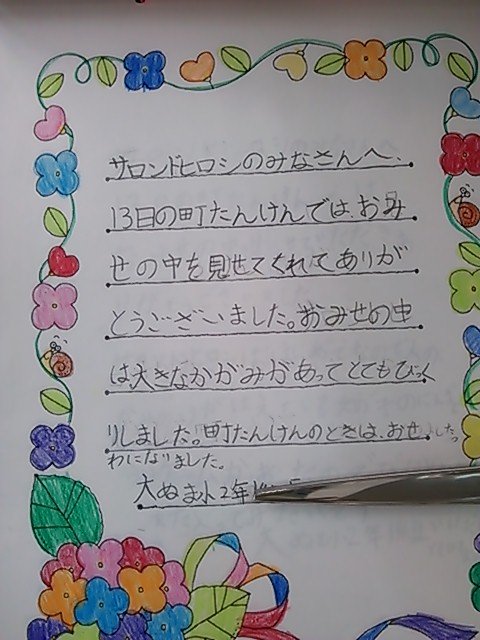 サロンドヒロシのみなさんへ、
13日の町たんけんでは、おみ
せの中を見せてくれてありが
とうございました。おみせの中
は大きなかがみがあってとてもびっく
りしました。町たんけんのときは、おせ
わになりました。
大ぬま小2年